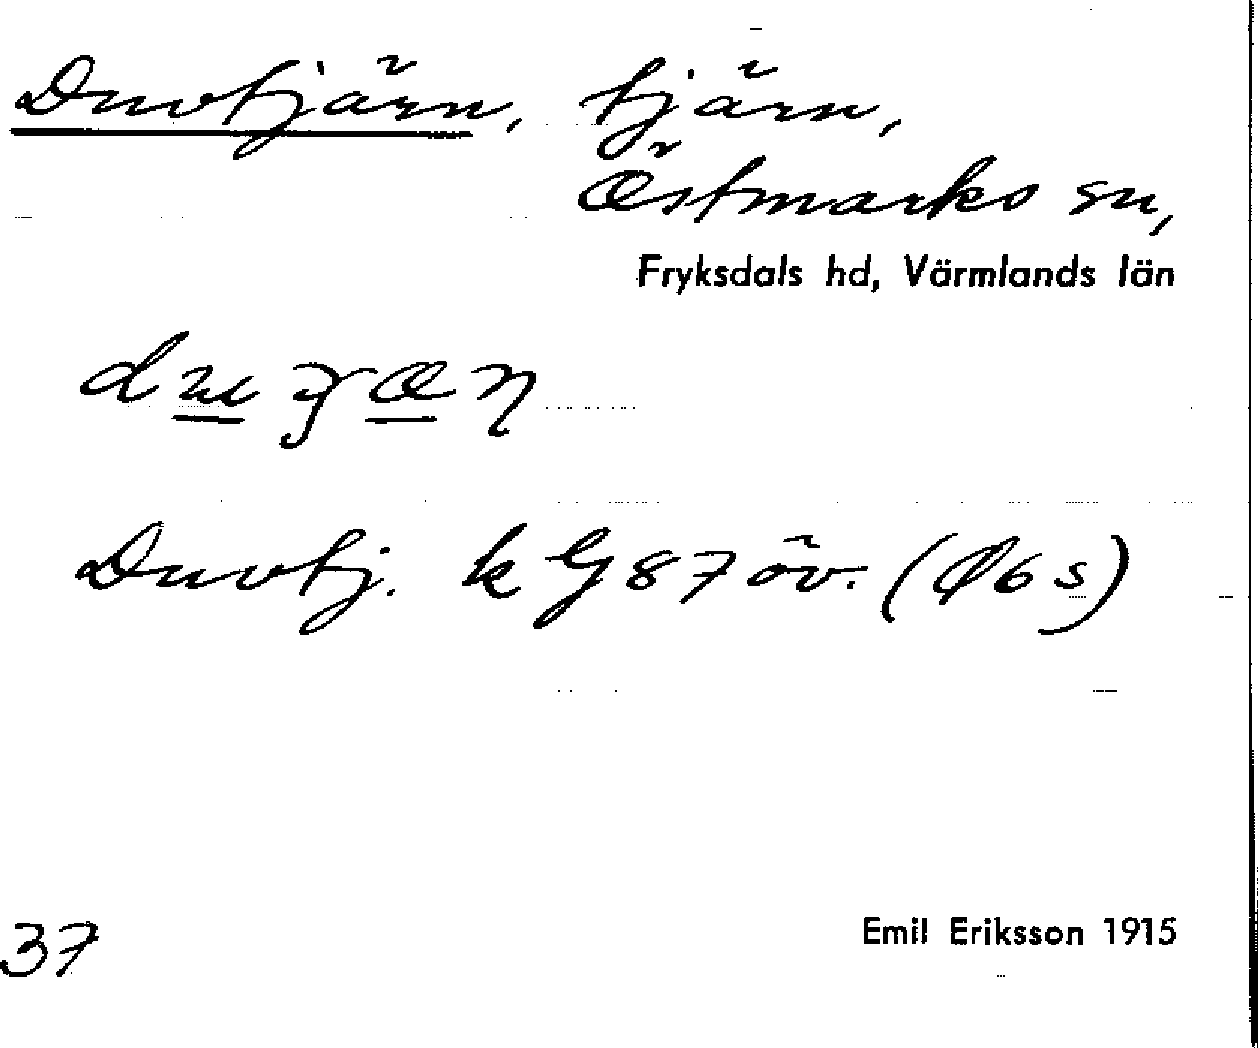 Duvtjärn, tjärn,
Östmarks sn,
Fryksdals hd, Värmlands län
Duvtj. k G 87 öv. (Ø6s)
37
Emil Eriksson 1915